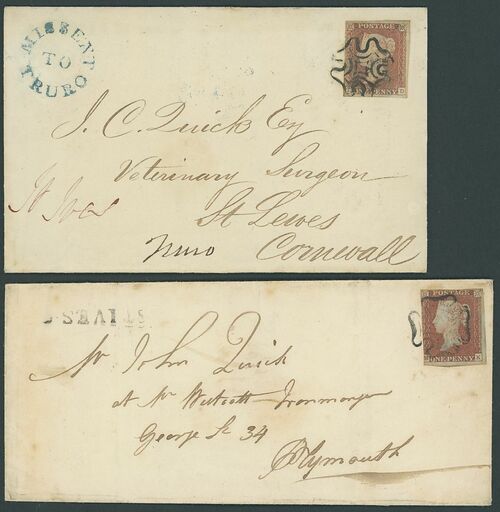 MISSENT
TO
TRURO
POSTAGE
D
ONE PENNY
J. C. Quick Esq
Veterinary Surgeon
St Lewes
Cornwall
St Ives
Truro
ST IVES
POSTAGE
ONE PENNY
K
Mr John Quick
at Mr Westcott Ironmonger
George St 34
Plymouth